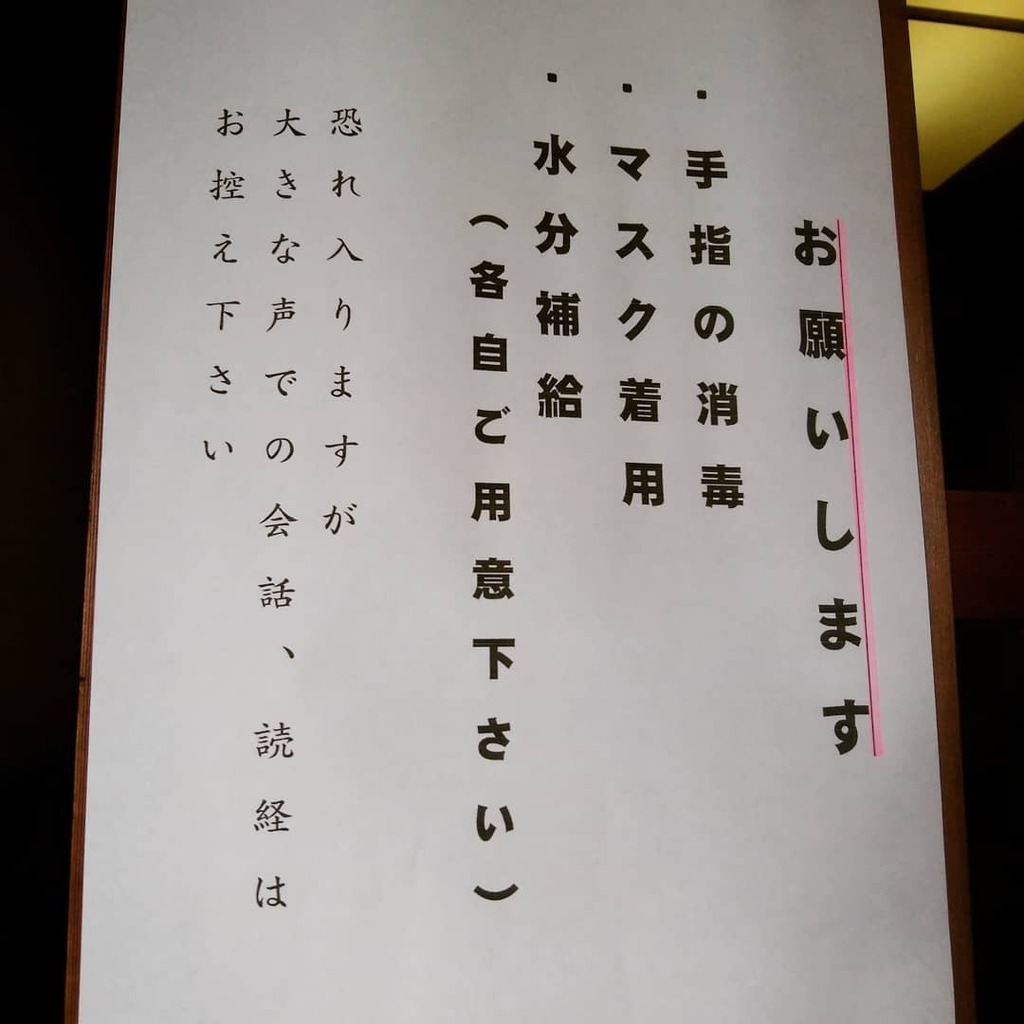 お願いします
・手指の消毒
・マスク着用
・水分補給
（各自ご用意下さい）
恐れ入りますが
大きな声での会話、読経は
お控え下さい